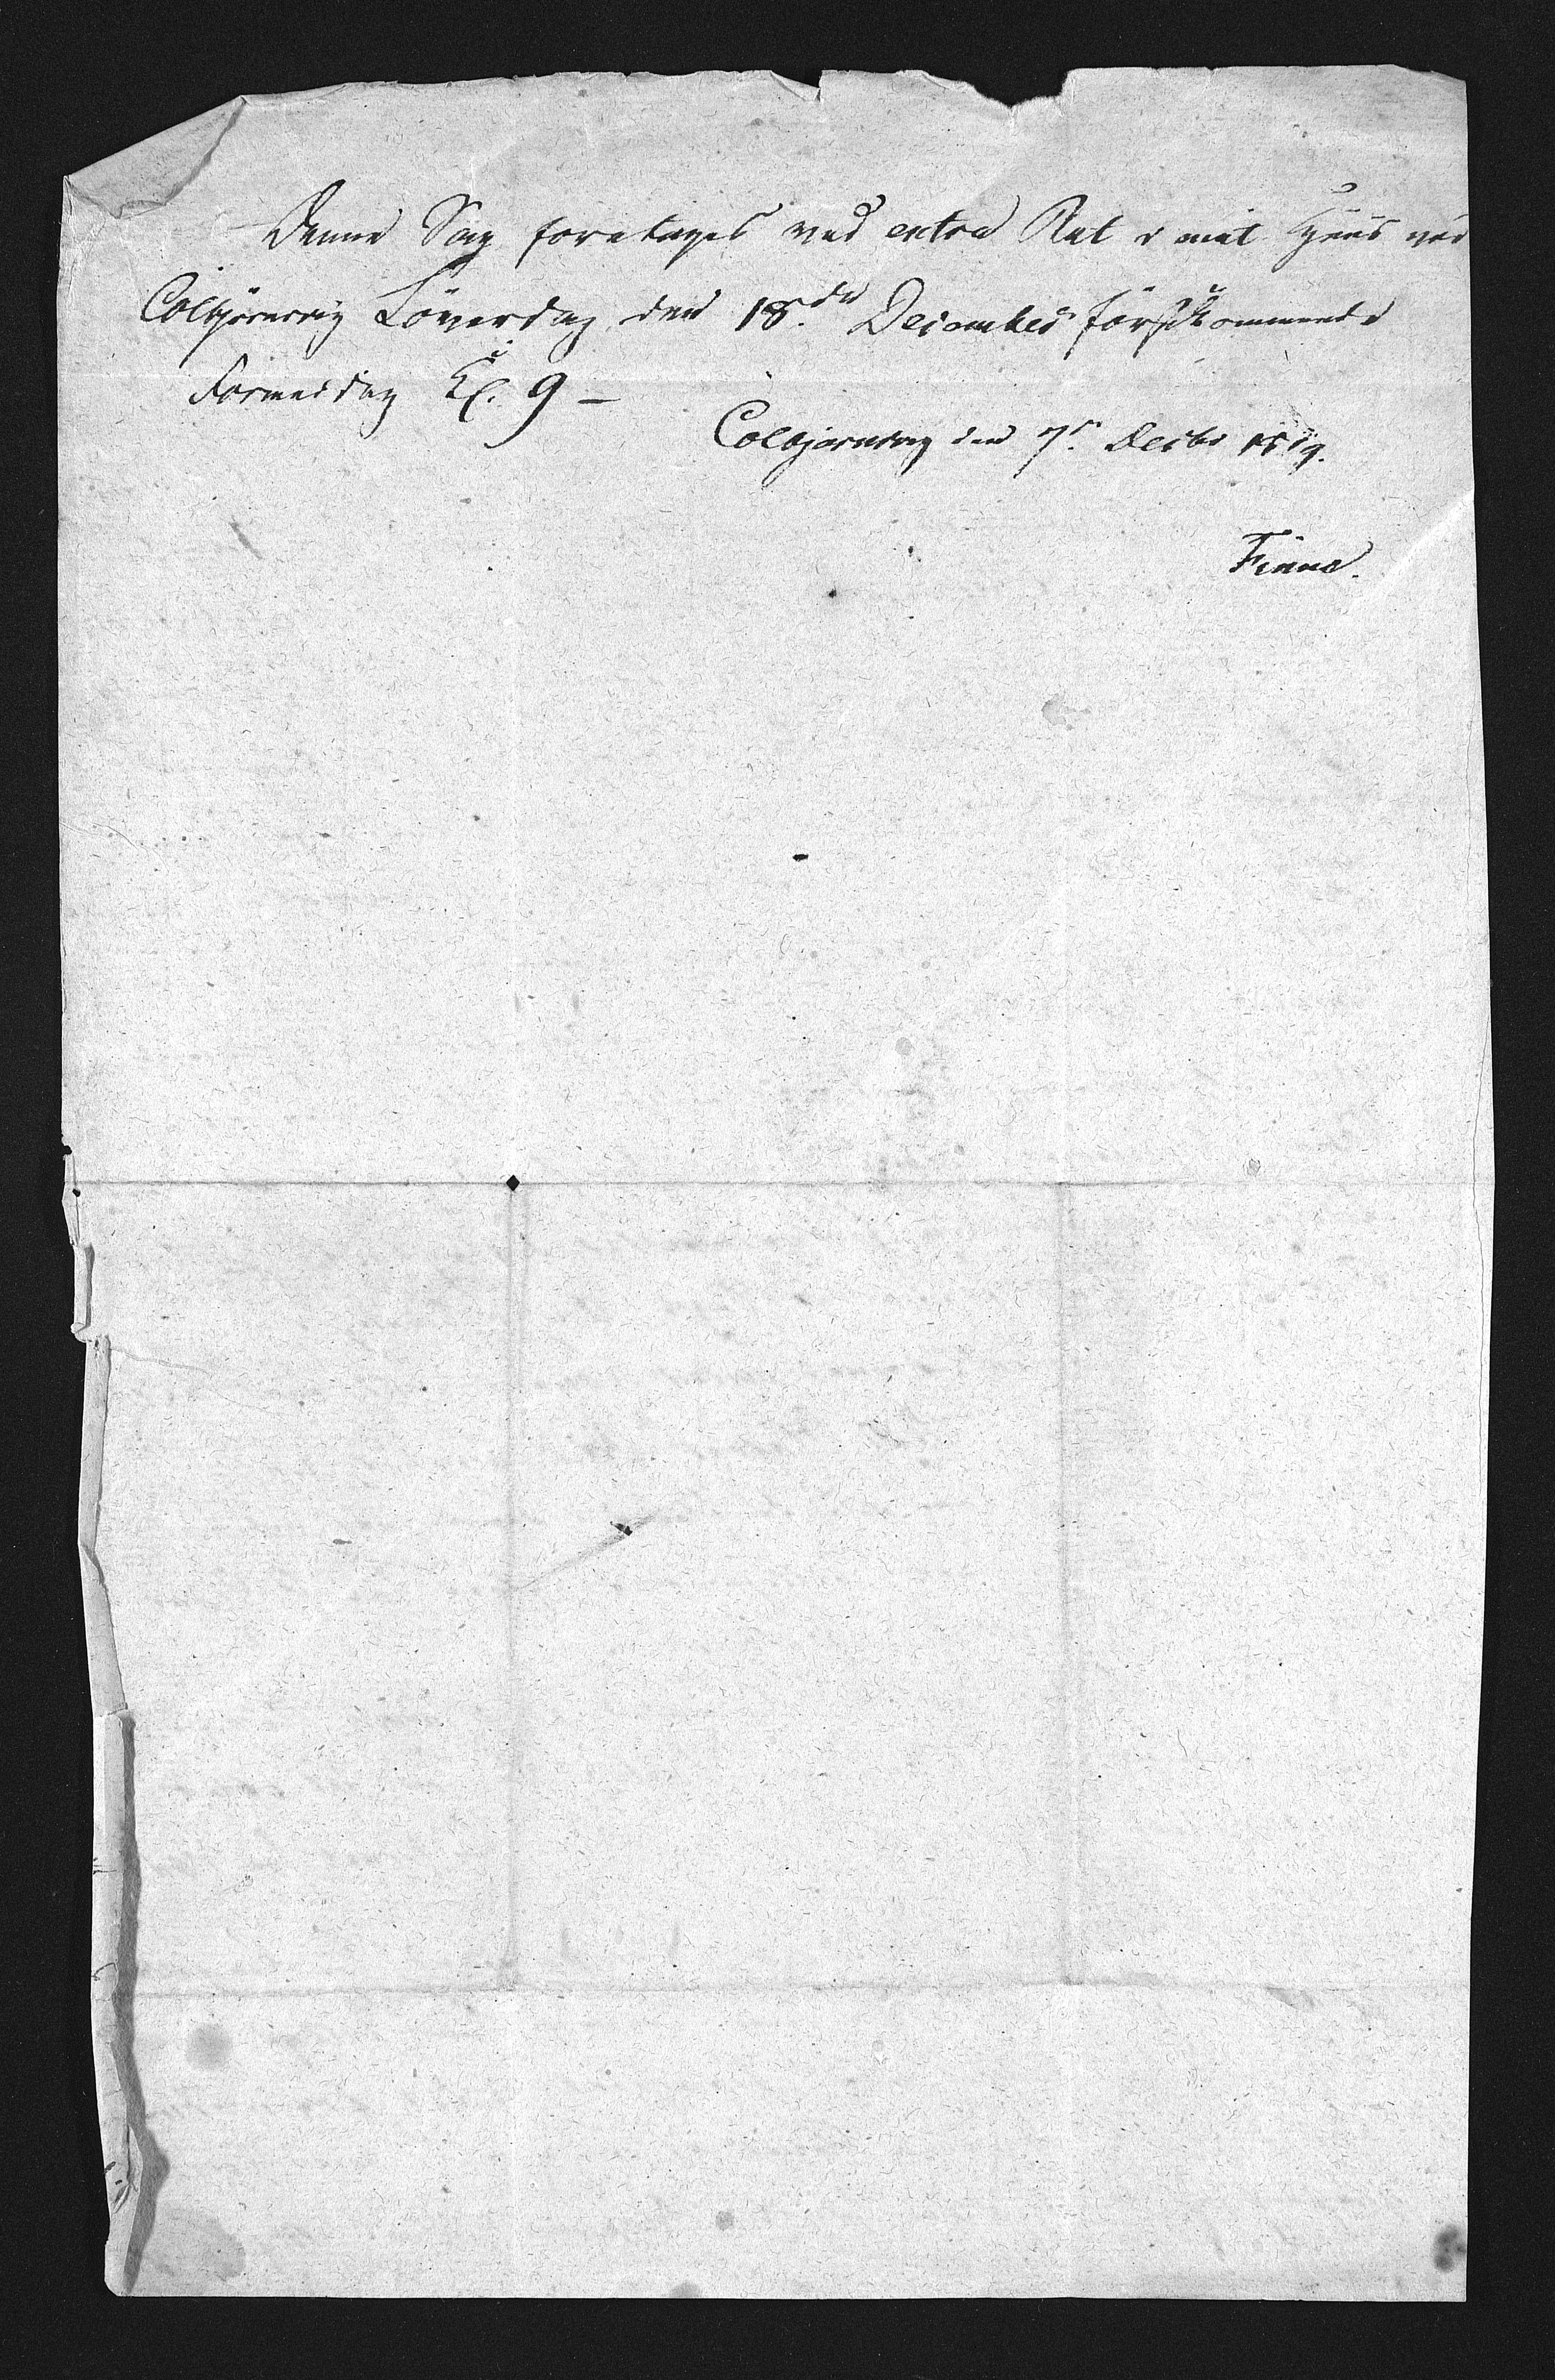 Denne Sag foretages ved extra Ret i mit Huus ved
Colbjørnsvig Löverdag den 18de December förstkommende
Formiddag Kl. 9 –
Colbjørnsvig den 7de Decbr 1819.
Finne.